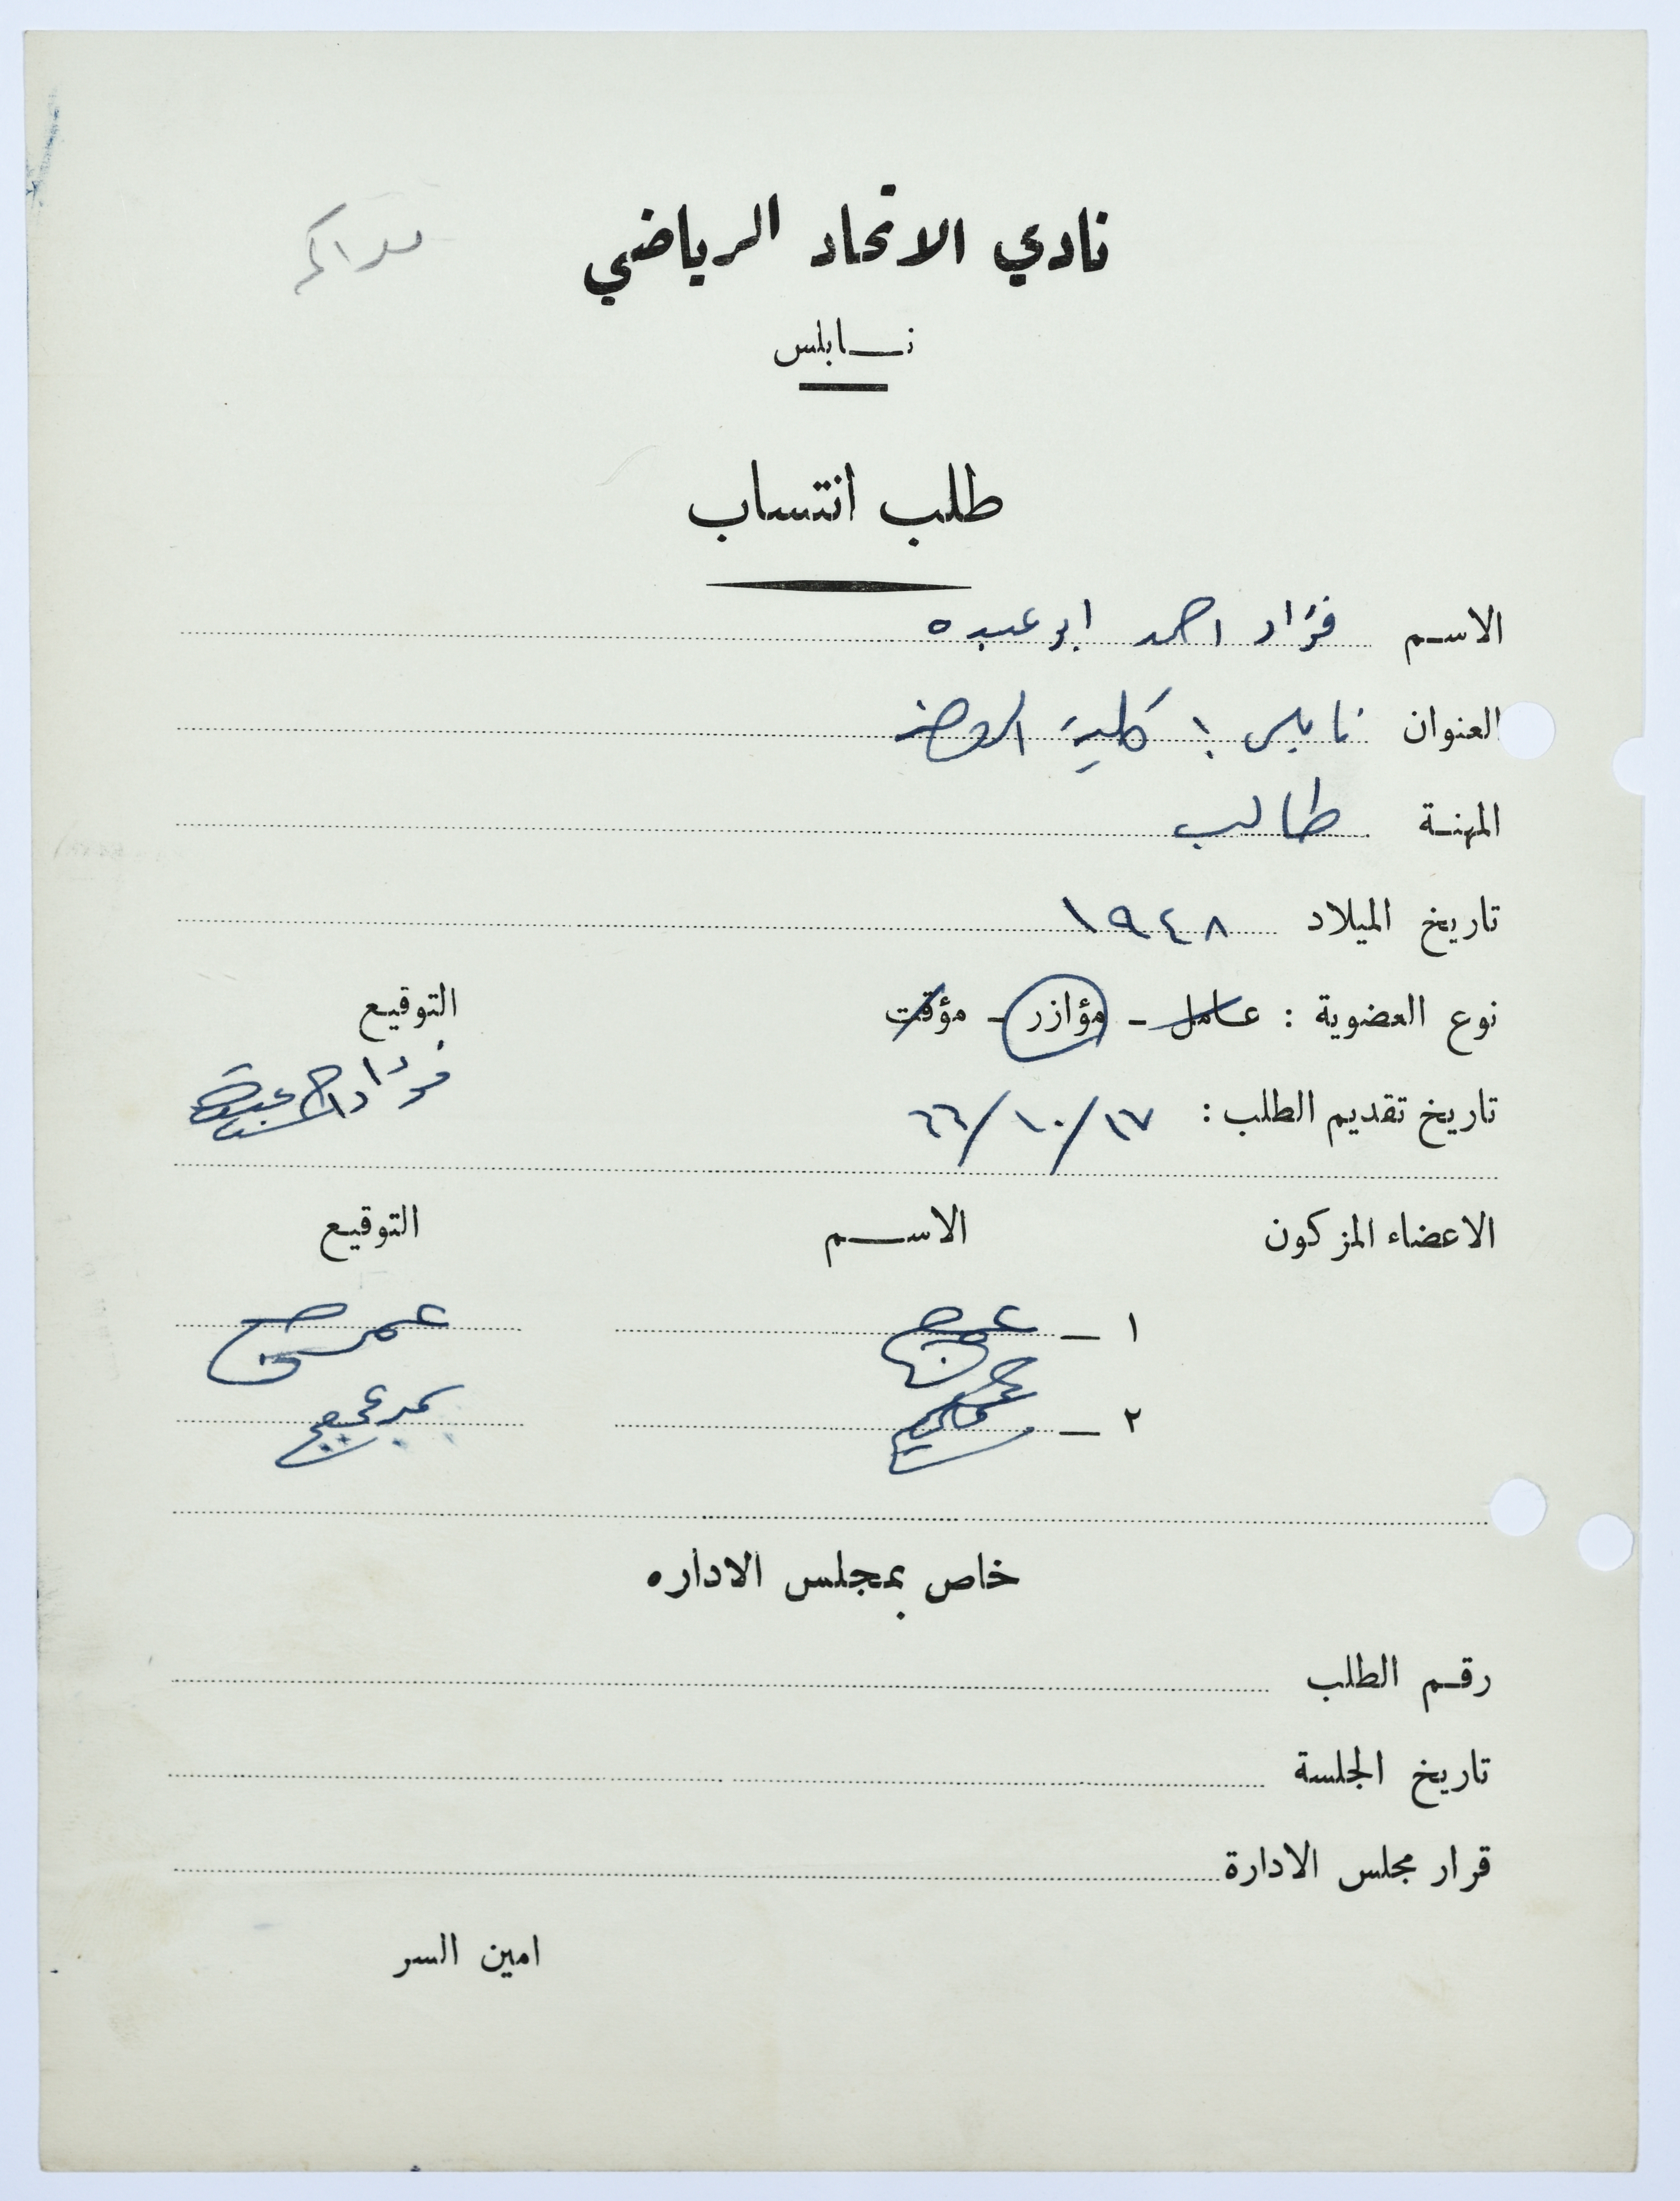 نادي الاتحاد الرياضي
نابلس
طلب انتساب
الاسم فؤاد احمد ابو عبده
العنوان نابلس : كلية الروضة
المهنة طالب
تاريخ الميلاد ١٩٤٨
نوع العضوية : عامل - مؤازر - مؤقت التوقيع
تاريخ تقديم الطلب : ١٧/١٠/٦٦
الاعضاء المزكون الاسم التوقيع
١ -
٢ -
خاص بمجلس الاداره
رقم الطلب
تاريخ الجلسة
قرار مجلس الادارة
امين السر